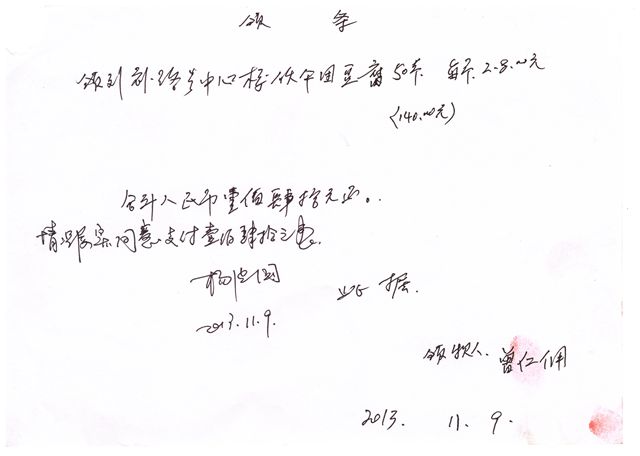 领 条
领到 中心校伙午团豆腐50斤. 每斤 2.8.00元
(140.00元)
合计人民币壹佰肆拾元正.
情况属实同意支付壹佰肆拾元.
杨
2013.11.9.
此 据.
领款人. 曾仁佣
2013. 11. 9.